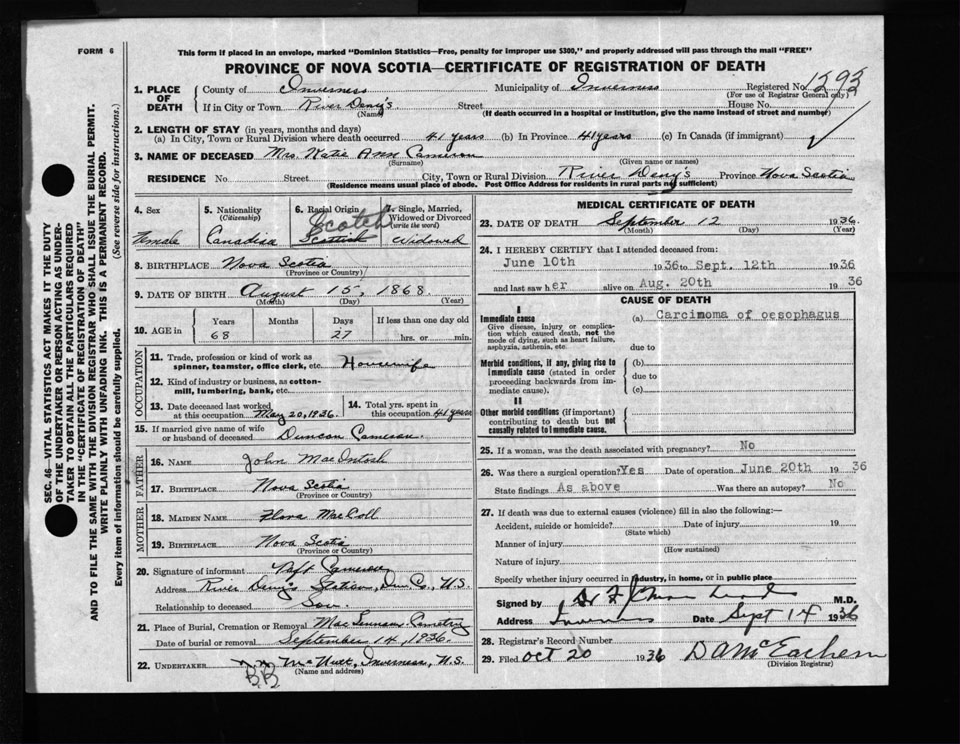 FORM 6
This form if placed in an envelope, marked "Dominion Statistics—Free, penalty for improper use $300," and properly addressed will pass through the mail "FREE"
PROVINCE OF NOVA SCOTIA—CERTIFICATE OF REGISTRATION OF DEATH
SEC. 46—VITAL STATISTICS ACT MAKES IT THE DUTY
OF THE UNDERTAKER OR PERSON ACTING AS UNDER-
TAKER TO OBTAIN ALL THE PARTICULARS REQUIRED
IN THE "CERTIFICATE OF REGISTRATION OF DEATH"
AND TO FILE THE SAME WITH THE DIVISION REGISTRAR WHO SHALL ISSUE THE BURIAL PERMIT.
WRITE PLAINLY WITH UNFADING INK. THIS IS A PERMANENT RECORD.
Every item of information should be carefully supplied. (See reverse side for instructions.)
1. PLACE OF DEATH County of Inverness Municipality of Inverness Registered No. 1293
(For use of Registrar General only)
If in City or Town River Deny's Street House No.
(Name) (If death occurred in a hospital or institution, give the name instead of street and number)
2. LENGTH OF STAY (in years, months and days)
(a) In City, Town or Rural Division where death occurred 41 years (b) In Province 41 years (c) In Canada (if immigrant)
3. NAME OF DECEASED Mrs. Katie Ann Cameron
(Surname) (Given name or names)
RESIDENCE No Street City, Town or Rural Division River Deny's Province Nova Scotia
(Residence means usual place of abode. Post Office Address for residents in rural parts not sufficient)
4. Sex Female
5. Nationality (Citizenship) Canadian
6. Racial Origin Scotch Scottish
7. Single, Married, Widowed or Divorced (write the word) Widowed
8. BIRTHPLACE Nova Scotia
(Province or Country)
9. DATE OF BIRTH August 15, 1868
(Month) (Day) (Year)
10. AGE in Years Months Days If less than one day old
68 27 hrs. or min.
OCCUPATION
11. Trade, profession or kind of work as spinner, teamster, office clerk, etc. Housewife
12. Kind of industry or business, as cotton-mill, lumbering, bank, etc.
13. Date deceased last worked at this occupation May 20, 1936.
14. Total yrs. spent in this occupation 41 years
15. If married give name of wife or husband of deceased Duncan Cameron.
FATHER
16. NAME John MacIntosh
17. BIRTHPLACE Nova Scotia
(Province or Country)
MOTHER
18. MAIDEN NAME Flora MacColl
19. BIRTHPLACE Nova Scotia
(Province or Country)
20. Signature of informant Cameron
Address River Deny's Station, Co., N.S.
Relationship to deceased Son.
21. Place of Burial, Cremation or Removal MacLennan Cemetery
Date of burial or removal September 14, 1836.
22. UNDERTAKER McNutt, Inverness, N.S.
(Name and address)
MEDICAL CERTIFICATE OF DEATH
23. DATE OF DEATH September 12 1936.
(Month) (Day) (Year)
24. I HEREBY CERTIFY that I attended deceased from:
June 10th 1936 to Sept. 12th 1936
and last saw her alive on Aug. 20th 1936
CAUSE OF DEATH
I
Immediate cause
Give disease, injury or complication which caused death, not the mode of dying, such as heart failure, asphyxia, asthenia, etc.
(a) Carcimoma of oesophagus
due to
Morbid conditions, if any, giving rise to immediate cause (stated in order proceeding backwards from immediate cause).
(b)
due to
(c)
II
Other morbid conditions (if important) contributing to death but not causally related to immediate cause.
25. If a woman, was the death associated with pregnancy? No
26. Was there a surgical operation? Yes Date of operation June 20th 1936
State findings As above Was there an autopsy? No
27. If death was due to external causes (violence) fill in also the following:—
Accident, suicide or homicide? Date of injury 19
(State which)
Manner of injury
(How sustained)
Nature of injury
Specify whether injury occurred in industry, in home, or in public place
Signed by M.D.
Address Inverness Date Sept 14 1936
28. Registrar's Record Number
29. Filed Oct 20 1936 D A McEachern
(Division Registrar)